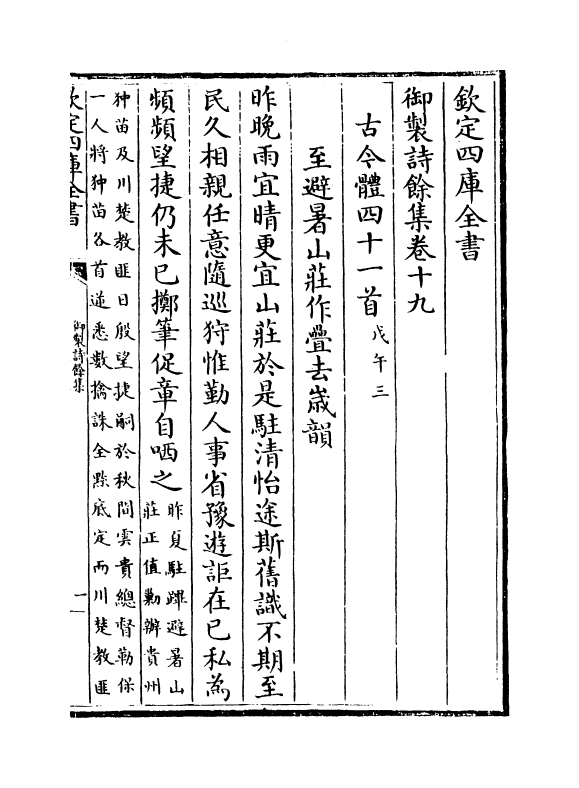 欽定四庫全書
御製詩餘集卷十九
古今體四十一首戊午三
至避暑山莊作疊去嵗韻
昨晚雨宜晴更宜山莊於是駐清怡途斯舊識不期至
民久相親任意隨巡狩惟勤人事省豫遊詎在已私為
頻頻望捷仍未已擲筆促章自哂之
昨夏駐蹕避暑山
莊正值勦辦貴州
狆苗及川楚教匪日殷望捷嗣於秋間雲貴總督勒保
一人將狆苗各首逆悉數擒誅全黔底定而川楚教匪
欽定四庫全書
御製詩餘集
一